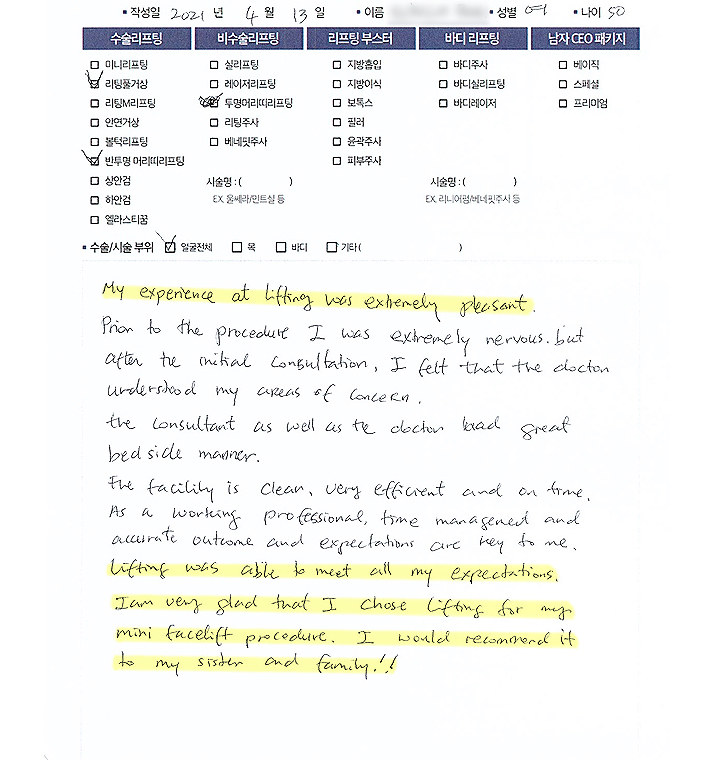 ▪ 작성일 2021 년 4 월 13 일 ▪ 이름 ▪ 성별 여 ▪ 나이 50
수술리프팅 비수술리프팅 리프팅 부스터 바디 리프팅 남자 CEO 패키지
미니리프팅 실리프팅 지방흡입 바디주사 베이직
리팅풀거상 레이저리프팅 지방이식 바디실리프팅 스페셜
리팅M리프팅 투명머리띠리프팅 보톡스 바디레이저 프리미엄
안면거상 리팅주사 필러
볼턱리프팅 베네핏주사 윤곽주사
반투명 머리띠리프팅 피부주사
상안검 시술명 : ( ) 시술명 : ( )
하안검 EX. 울쎄라/민트실 등 EX. 리니어펌/베네핏주사 등
엘라스티꿈
▪ 수술/시술 부위 얼굴전체 목 바디 기타 ( )
My experience at lifting was extremely pleasant.
Prior to the procedure I was extremely nervous. but
after the initial consultation, I felt that the doctor
understood my areas of concern.
the consultant as well as the doctor had great
bed side manner.
The facility is clean, very efficient and on time.
As a working professional, time managed and
accurate outcome and expectations are key to me.
Lifting was able to meet all my expectations.
I am very glad that I chose Lifting for my
mini facelift procedure. I would recommend it
to my sister and family!!